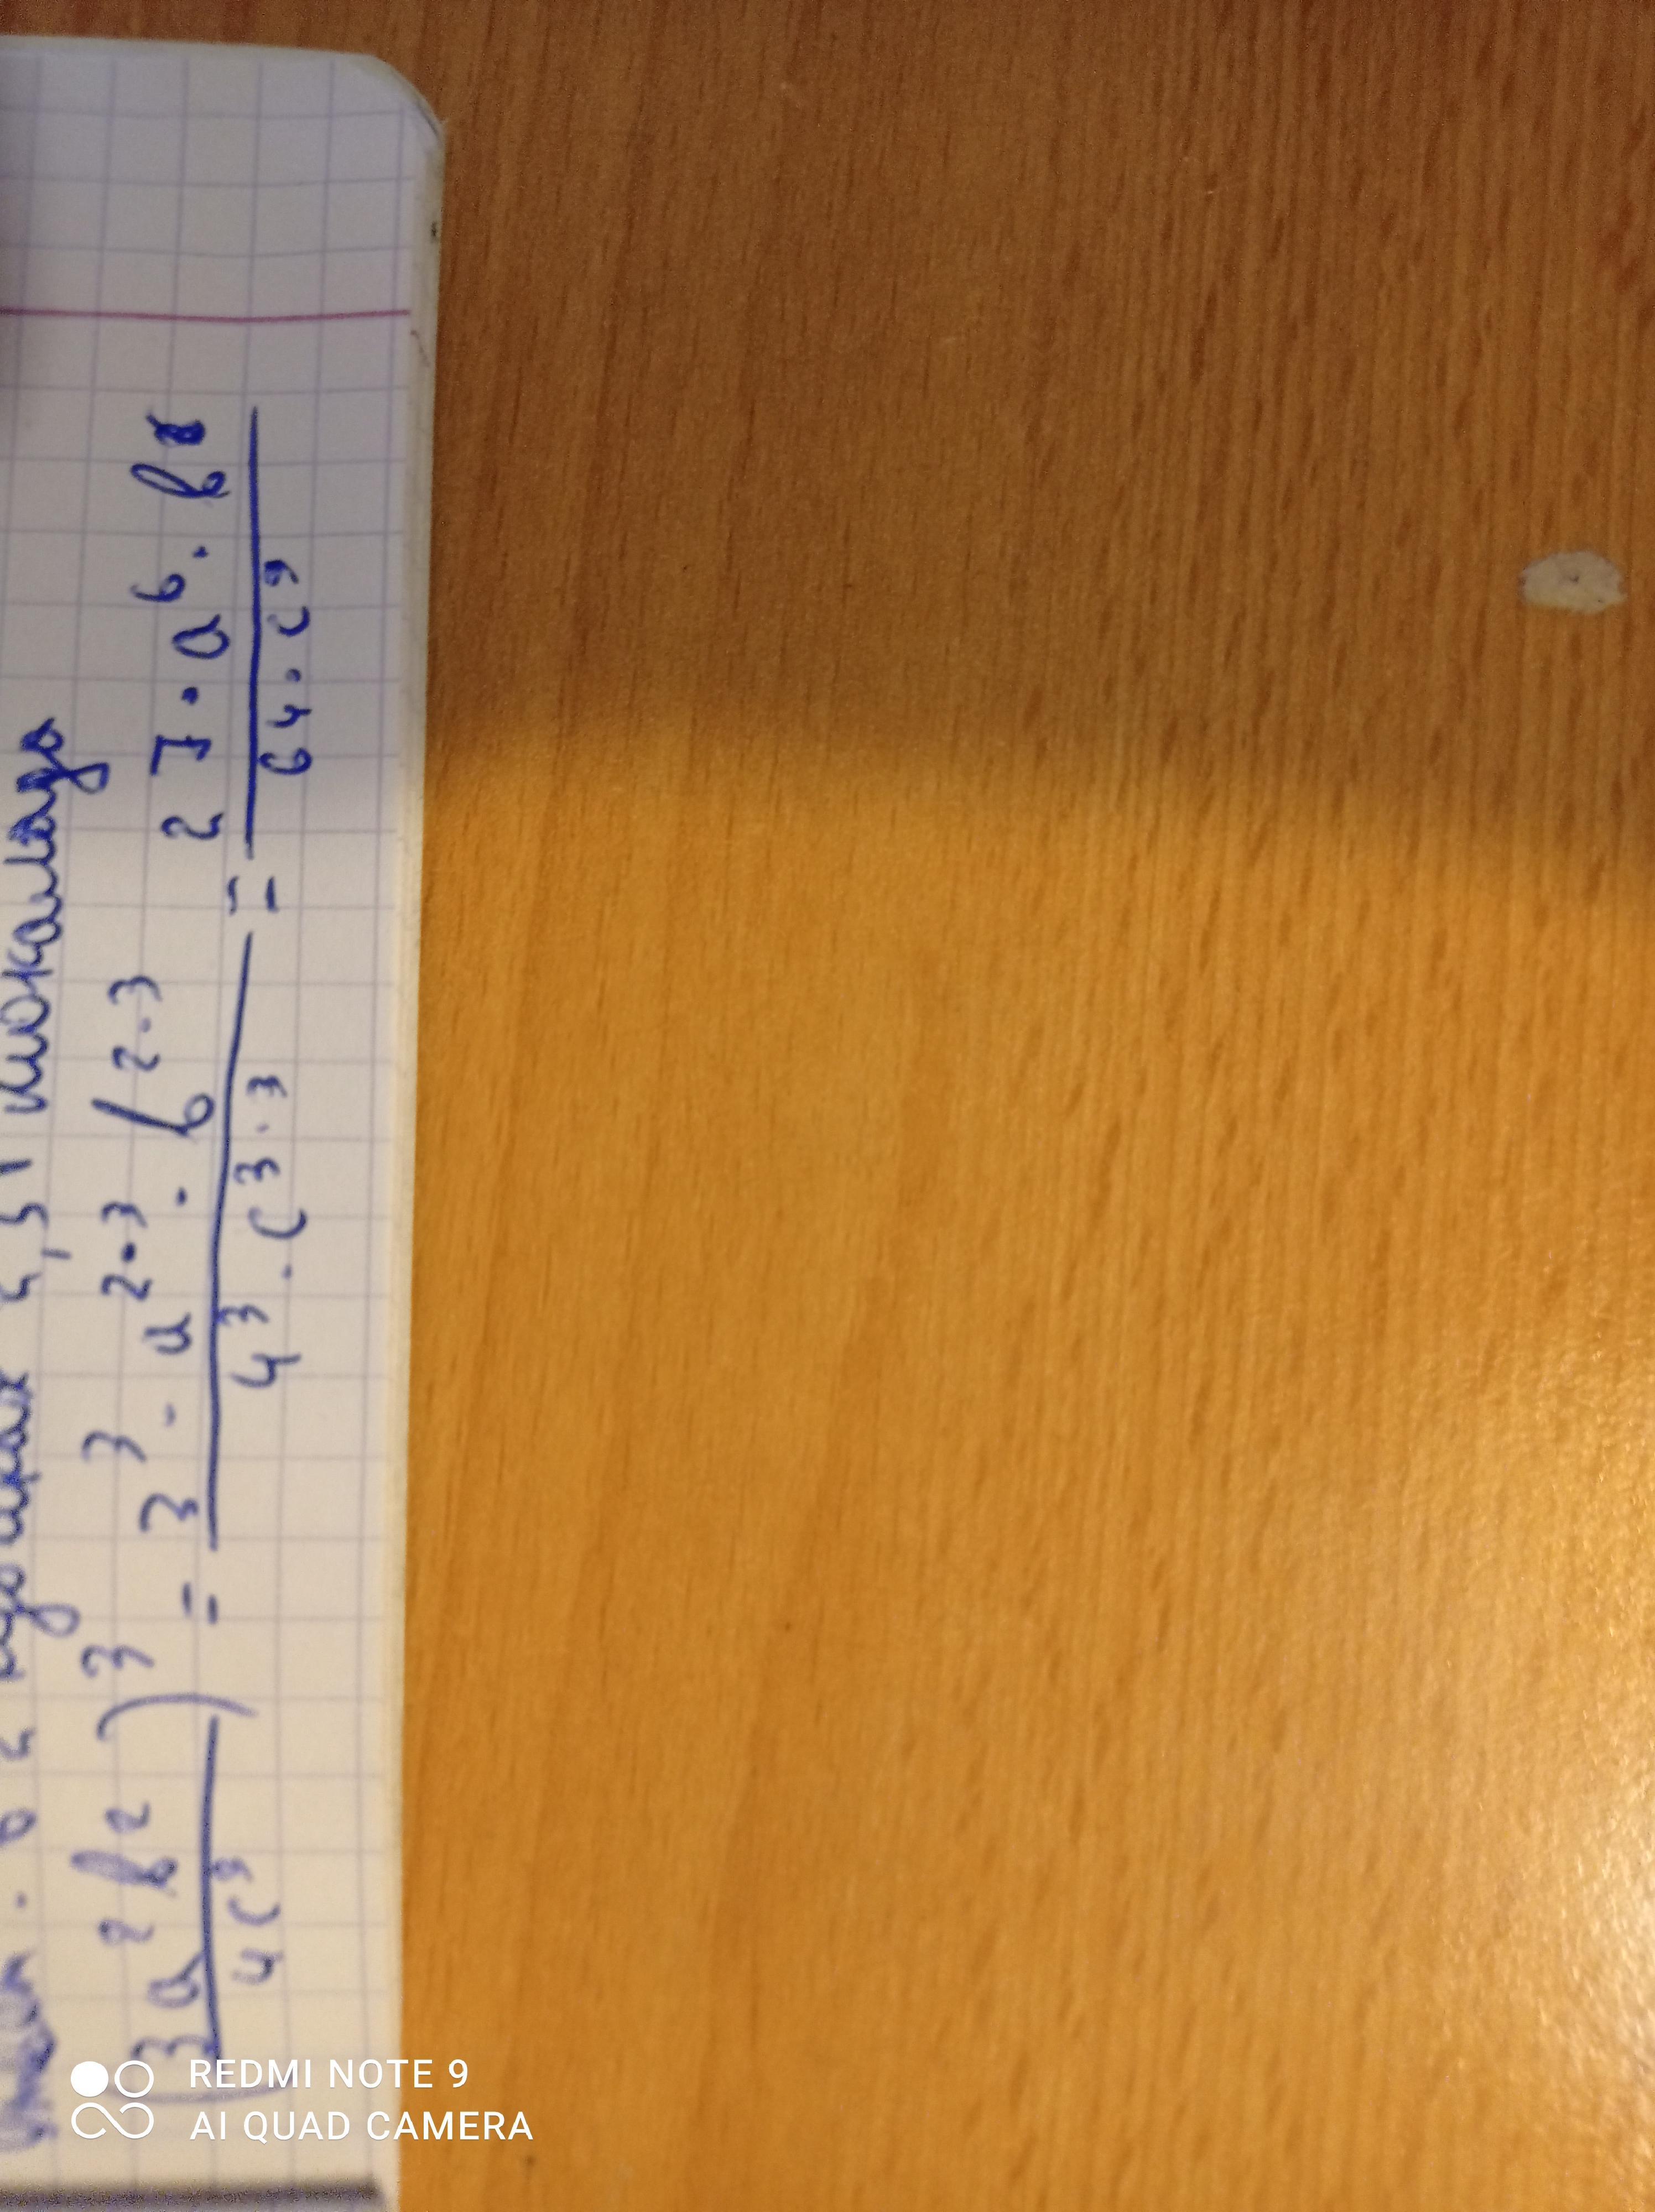 шоколада
(3a²b²/4c³)³ = 3³ · a²·³ · b²·³ / 4³ · c³·³ = 27 · a⁶ · b / 64 · c⁹
REDMI NOTE 9
AI QUAD CAMERA